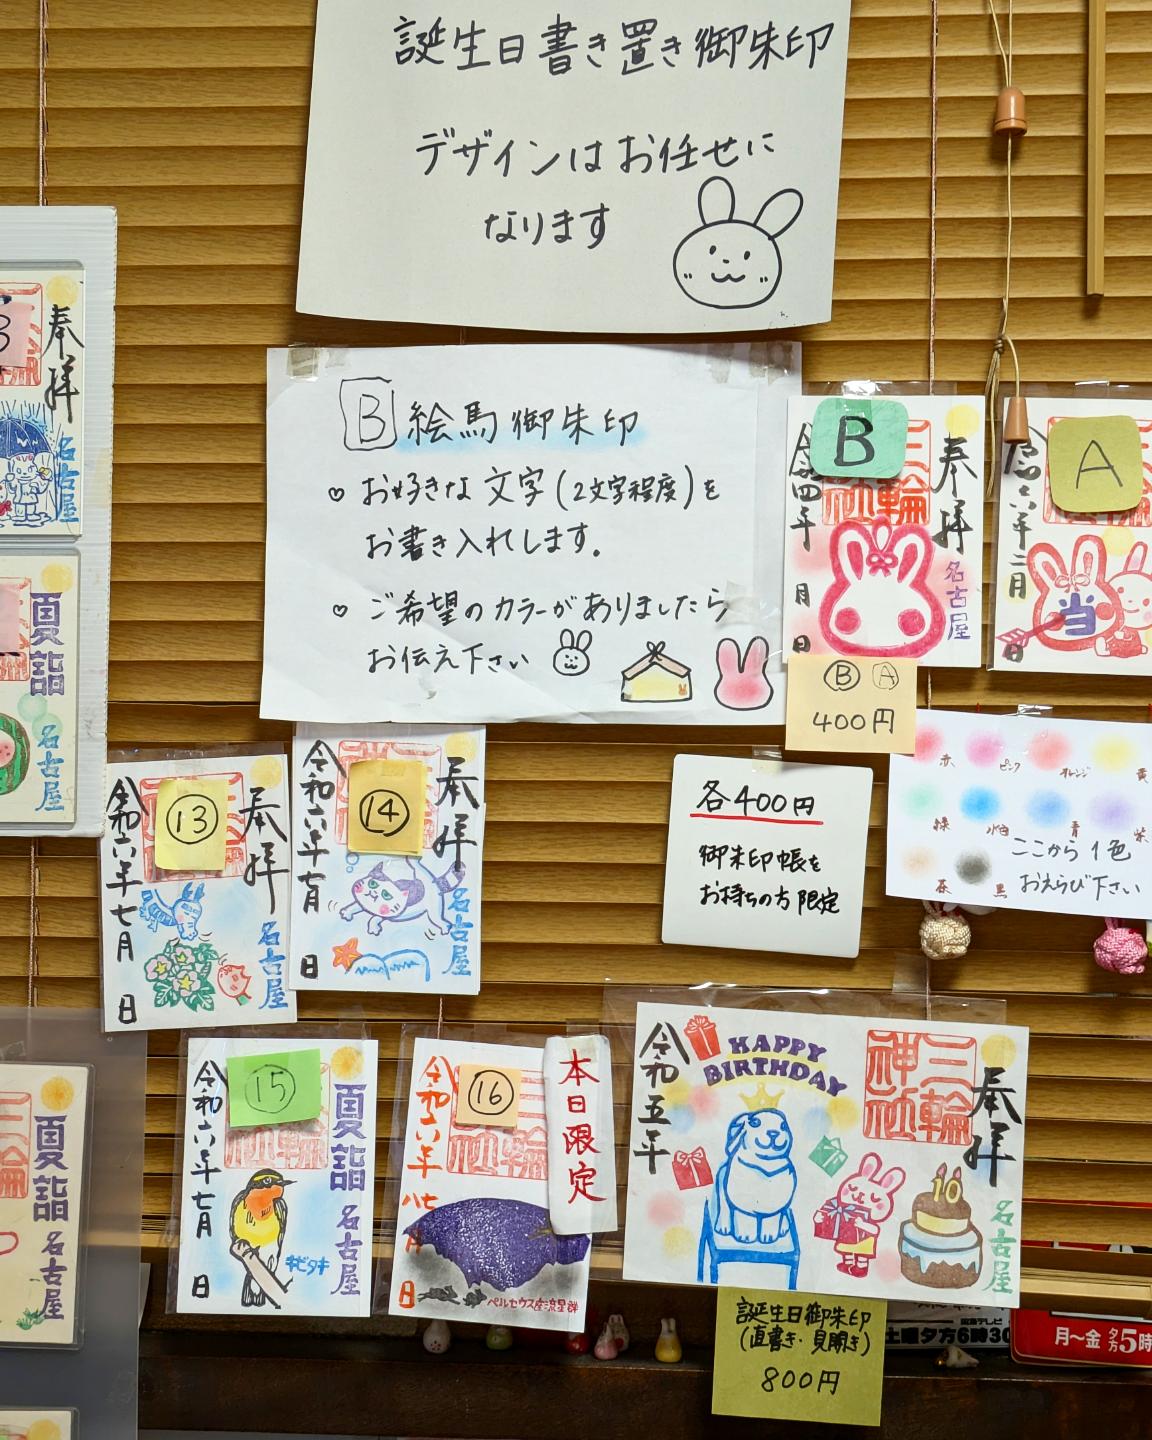 誕生日書き置き御朱印
デザインはお任せに
なります
B 絵馬御朱印
♡ お好きな文字(2文字程度)を
お書き入れします。
♡ ご希望のカラーがありましたら
お伝え下さい
奉拝
名古屋
夏詣
名古屋
B
奉拝
三輪
名古屋
四年
月
日
Ⓑ Ⓐ
400円
A
六年二月
当
日
各400円
御朱印帳を
お持ちの方限定
赤 ピンク オレンジ 黄
緑 水色 青 紫
茶 黒
ここから1色
おえらび下さい
⑬
奉拝
名古屋
令和六年七月
日
⑭
奉拝
名古屋
令和六年七月
日
夏詣
名古屋
⑮
夏詣
名古屋
令和六年七月
日
キビタキ
⑯
本日限定
令和六年
日
ペルセウス座流星群
奉拝
三輪神社
名古屋
HAPPY
BIRTHDAY
令和五年
10
誕生日御朱印
(直書き・見開き)
800円
土曜夕方6時30
月〜金 夕方5時